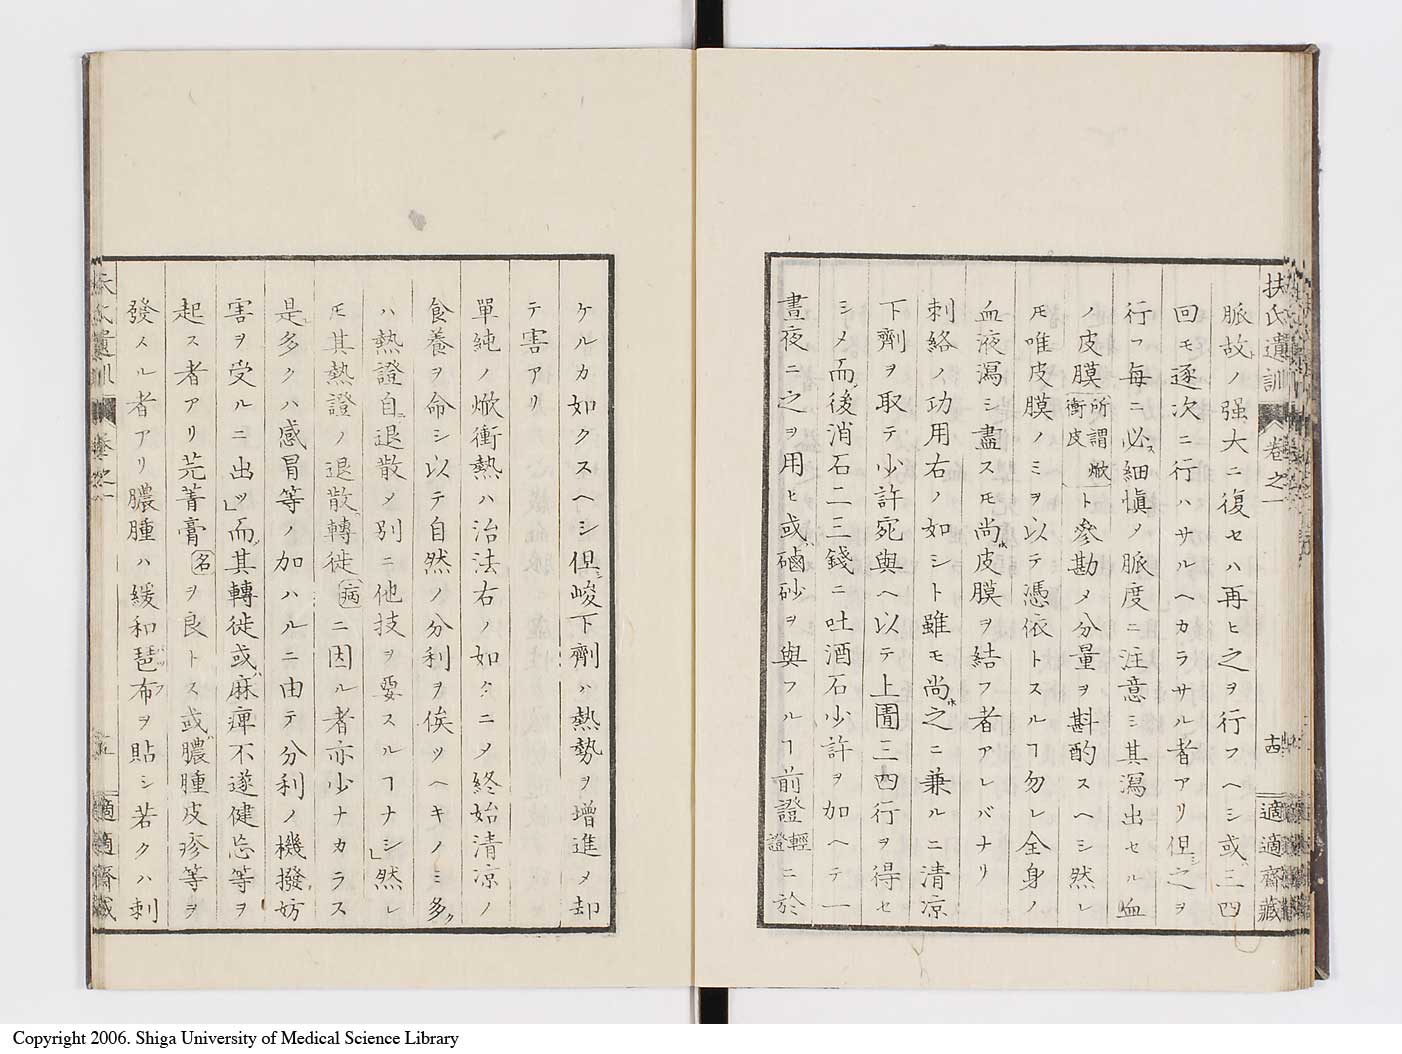 扶氏遺訓 卷之一 十四 適適齋藏
脈故ノ强大ニ復セハ再ヒ之ヲ行フヘシ或ハ三四
回モ逐次ニ行ハサルヘカラサル者アリ但シ之ヲ
行フ每ニ必ス細愼ノ脈度ニ注意シ其瀉出セル血
ノ皮膜所謂焮衝皮ト參勘メ分量ヲ斟酌スヘシ然レ
𪜈唯皮膜ノミヲ以テ憑依トスルヿ勿レ全身ノ
血液瀉シ盡スモ尚ホ皮膜ヲ結フ者アレバナリ
刺絡ノ功用右ノ如シト雖モ尚ホ之ニ兼ルニ清凉
下劑ヲ取テ少許宛與ヘ以テ上圊三四行ヲ得セ
シメ而後消石二三錢ニ吐酒石少許ヲ加ヘテ一
晝夜ニ之ヲ用ヒ或ハ磠砂ヲ與フルヿ前證輕證ニ於
ケルカ如クスヘシ但シ峻下劑ハ熱勢ヲ增進メ却
テ害アリ
單純ノ焮衝熱ハ治法右ノ如クニメ終始清凉ノ
食養ヲ命シ以テ自然ノ分利ヲ俟ツヘキノミ多ク
ハ熱證自退散メ別ニ他技ヲ要スルヿナシ」然レ
𪜈其熱證ノ退散轉徙病ニ因ル者亦少ナカラス
是レ多クハ感冒等ノ加ハルニ由テ分利ノ機撥妨
害ヲ受ルニ出ツ」而其轉徙或ハ麻痺不遂健忘等ヲ
起ス者アリ芫菁膏名ヲ良トス或ハ膿腫皮疹等ヲ
發スル者アリ膿腫ハ緩和琶布ヲ貼シ若クハ刺
扶氏遺訓 卷之一 適適齋藏
Copyright 2006. Shiga University of Medical Science Library